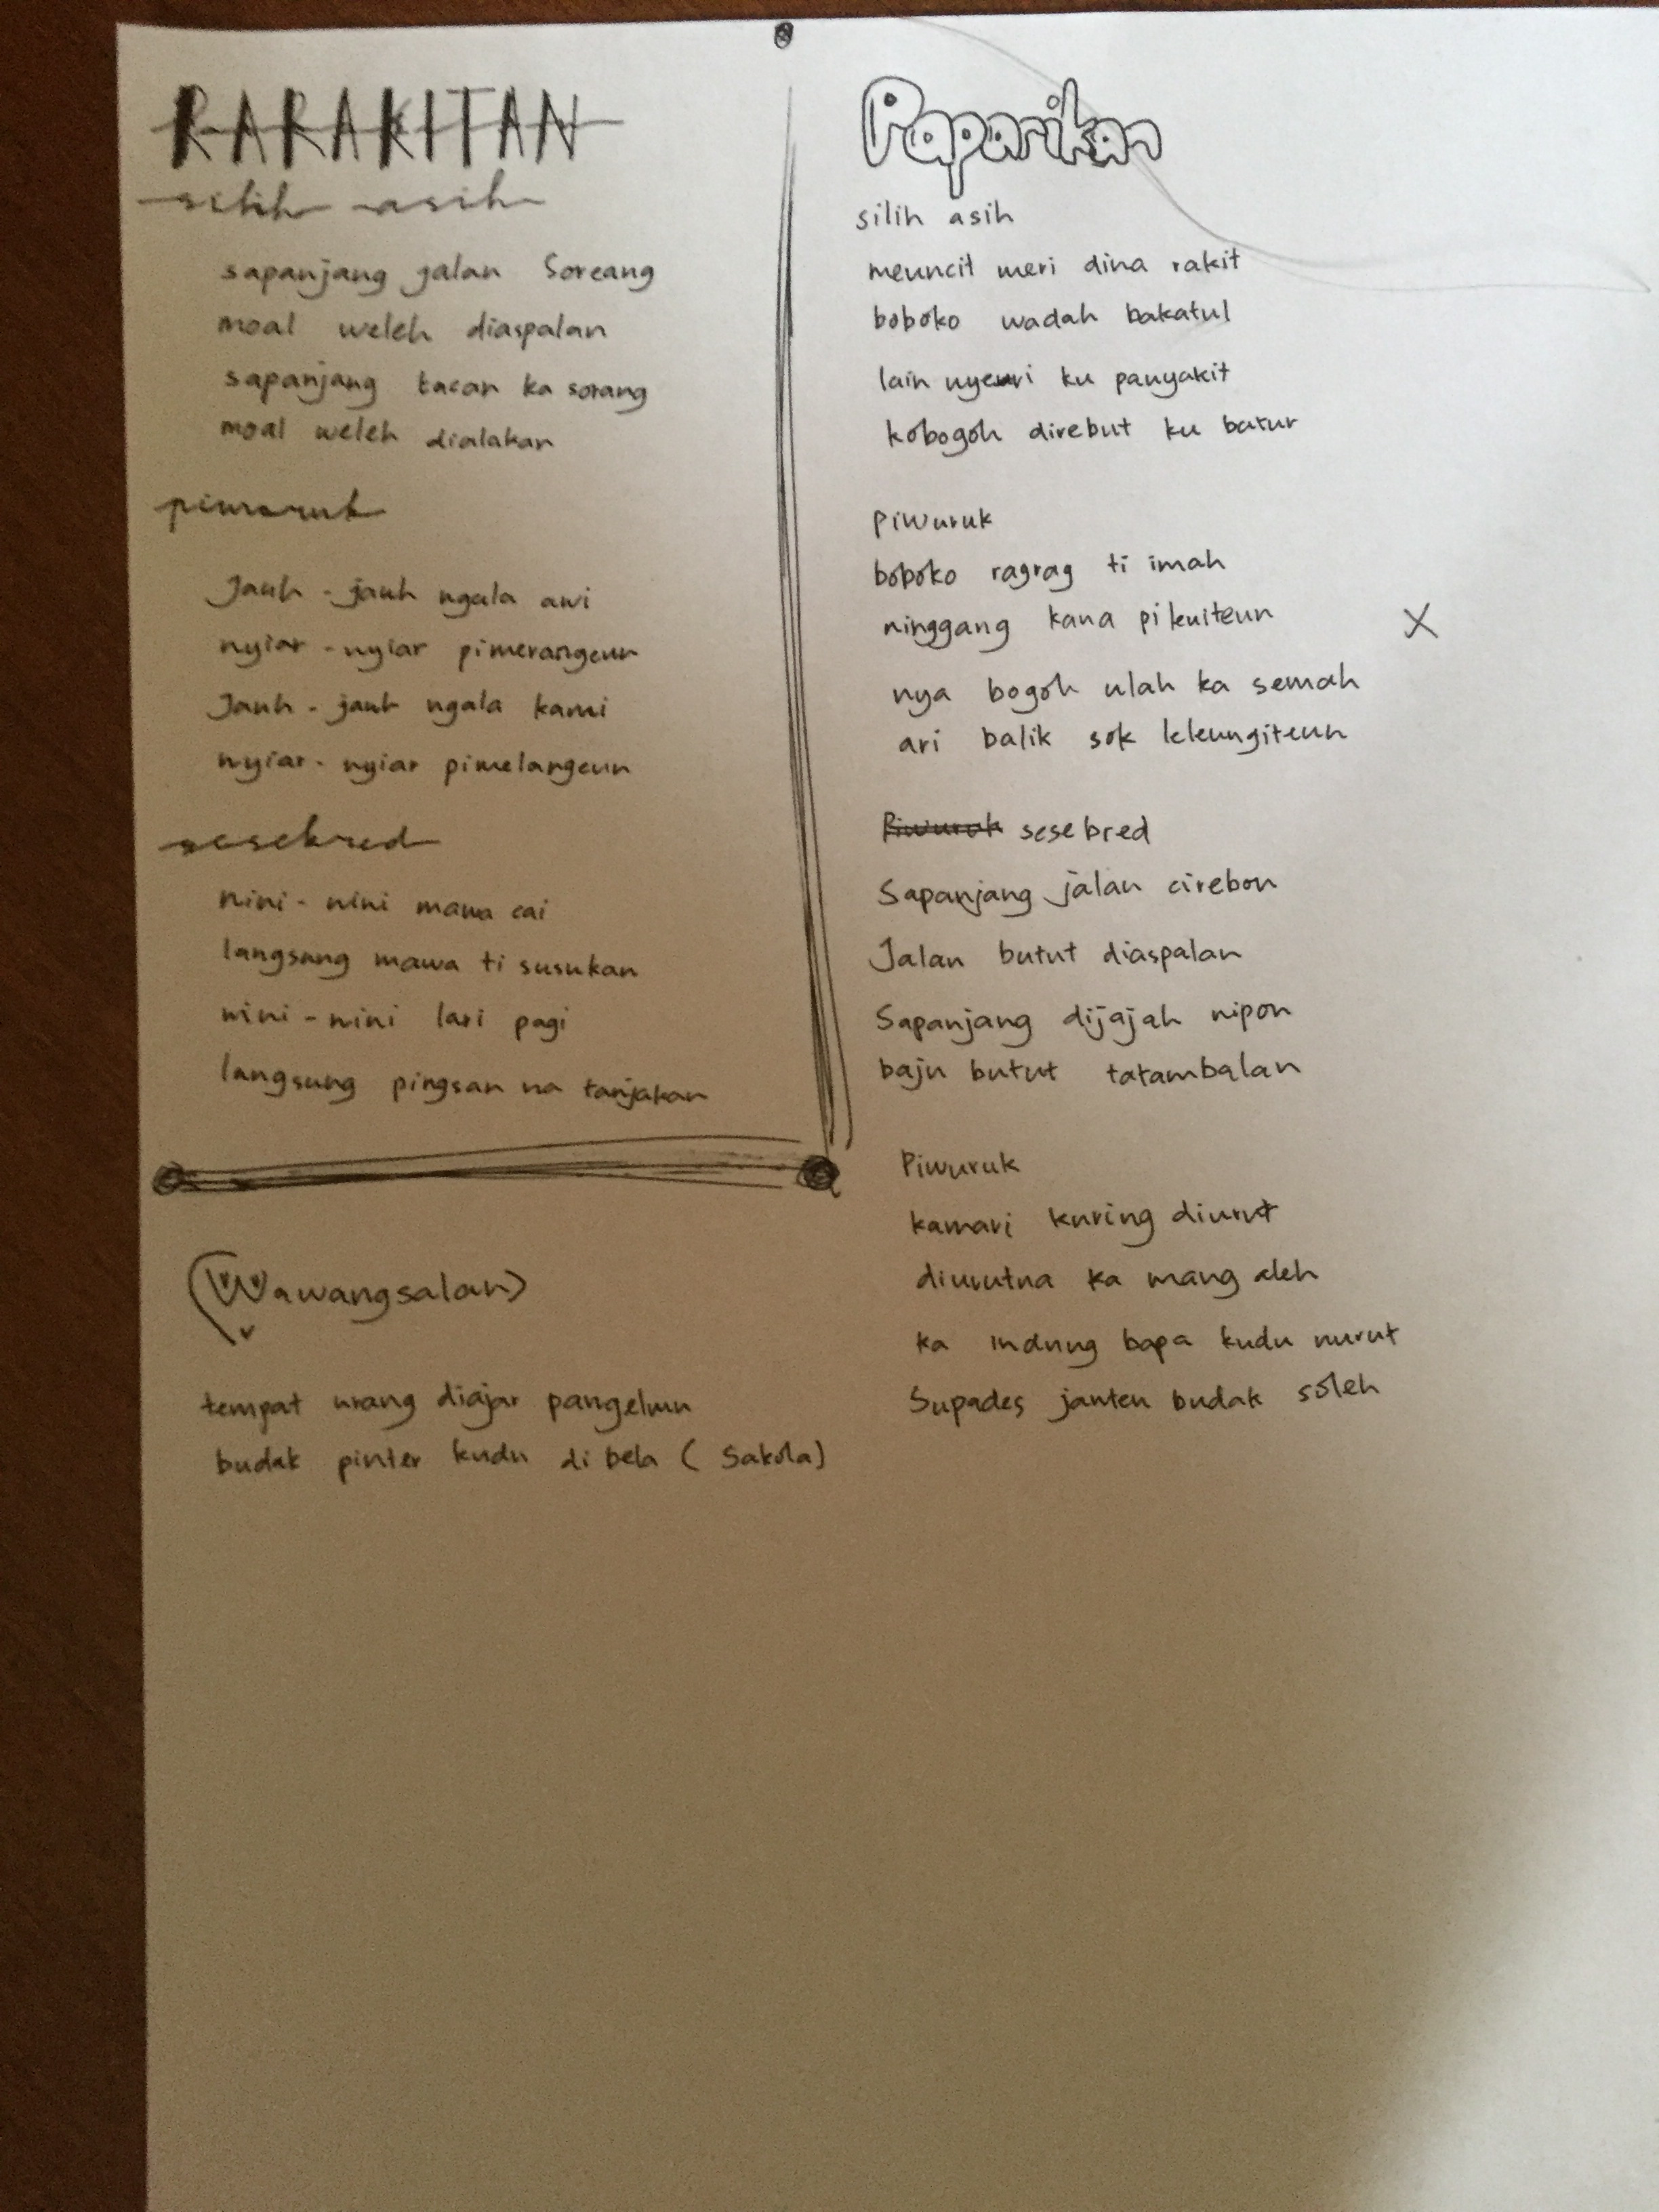 RARAKITAN
silih asih
sapanjang jalan Soreang
moal weleh diaspalan
sapanjang tacan ka sorang
moal weleh dialakan
piwuruk
Jauh - jauh ngala awi
nyiar - nyiar pimerangeun
Jauh - jauh ngala kami
nyiar - nyiar pimelangeun
sesebred
nini - nini mawa cai
langsung mawa ti susukan
nini - nini lari pagi
langsung pingsan na tanjakan
(Wawangsalan)
tempat urang diajar pangelmu
budak pinter kudu di bela ( Sakola)
Paparikan
silih asih
meuncit meri dina rakit
boboko wadah bakatul
lain nyeuri ku panyakit
kobogoh direbut ku batur
piwuruk
boboko ragrag ti imah
ninggang kana pikuiteun X
nya bogoh ulah ka semah
ari balik sok leleungiteun
Piwuruk sesebred
Sapanjang jalan cirebon
Jalan butut diaspalan
Sapanjang dijajah nipon
baju butut tatambalan
Piwuruk
kamari kuring diurut
diurutna ka mang aleh
ka indung bapa kudu nurut
Supades janten budak soleh